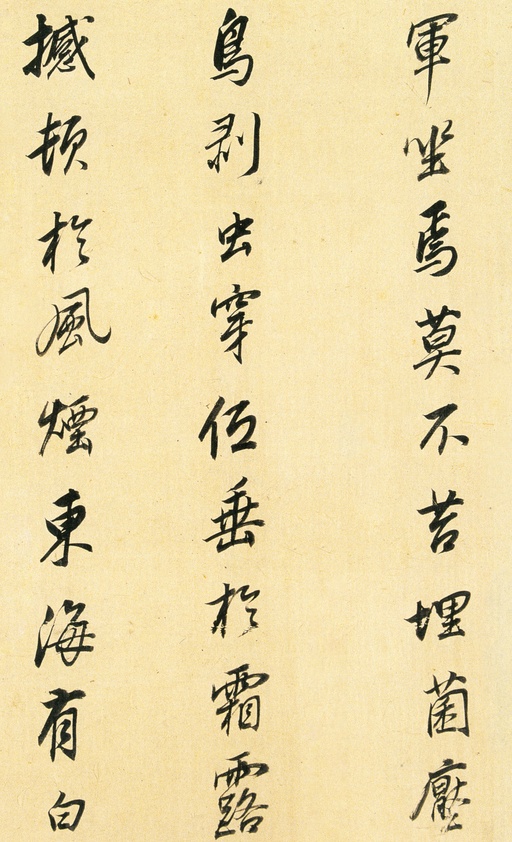 軍坐焉莫不苔埋菌壓
鳥剥虫穿低垂於霜露
撼頓於風煙東海有白